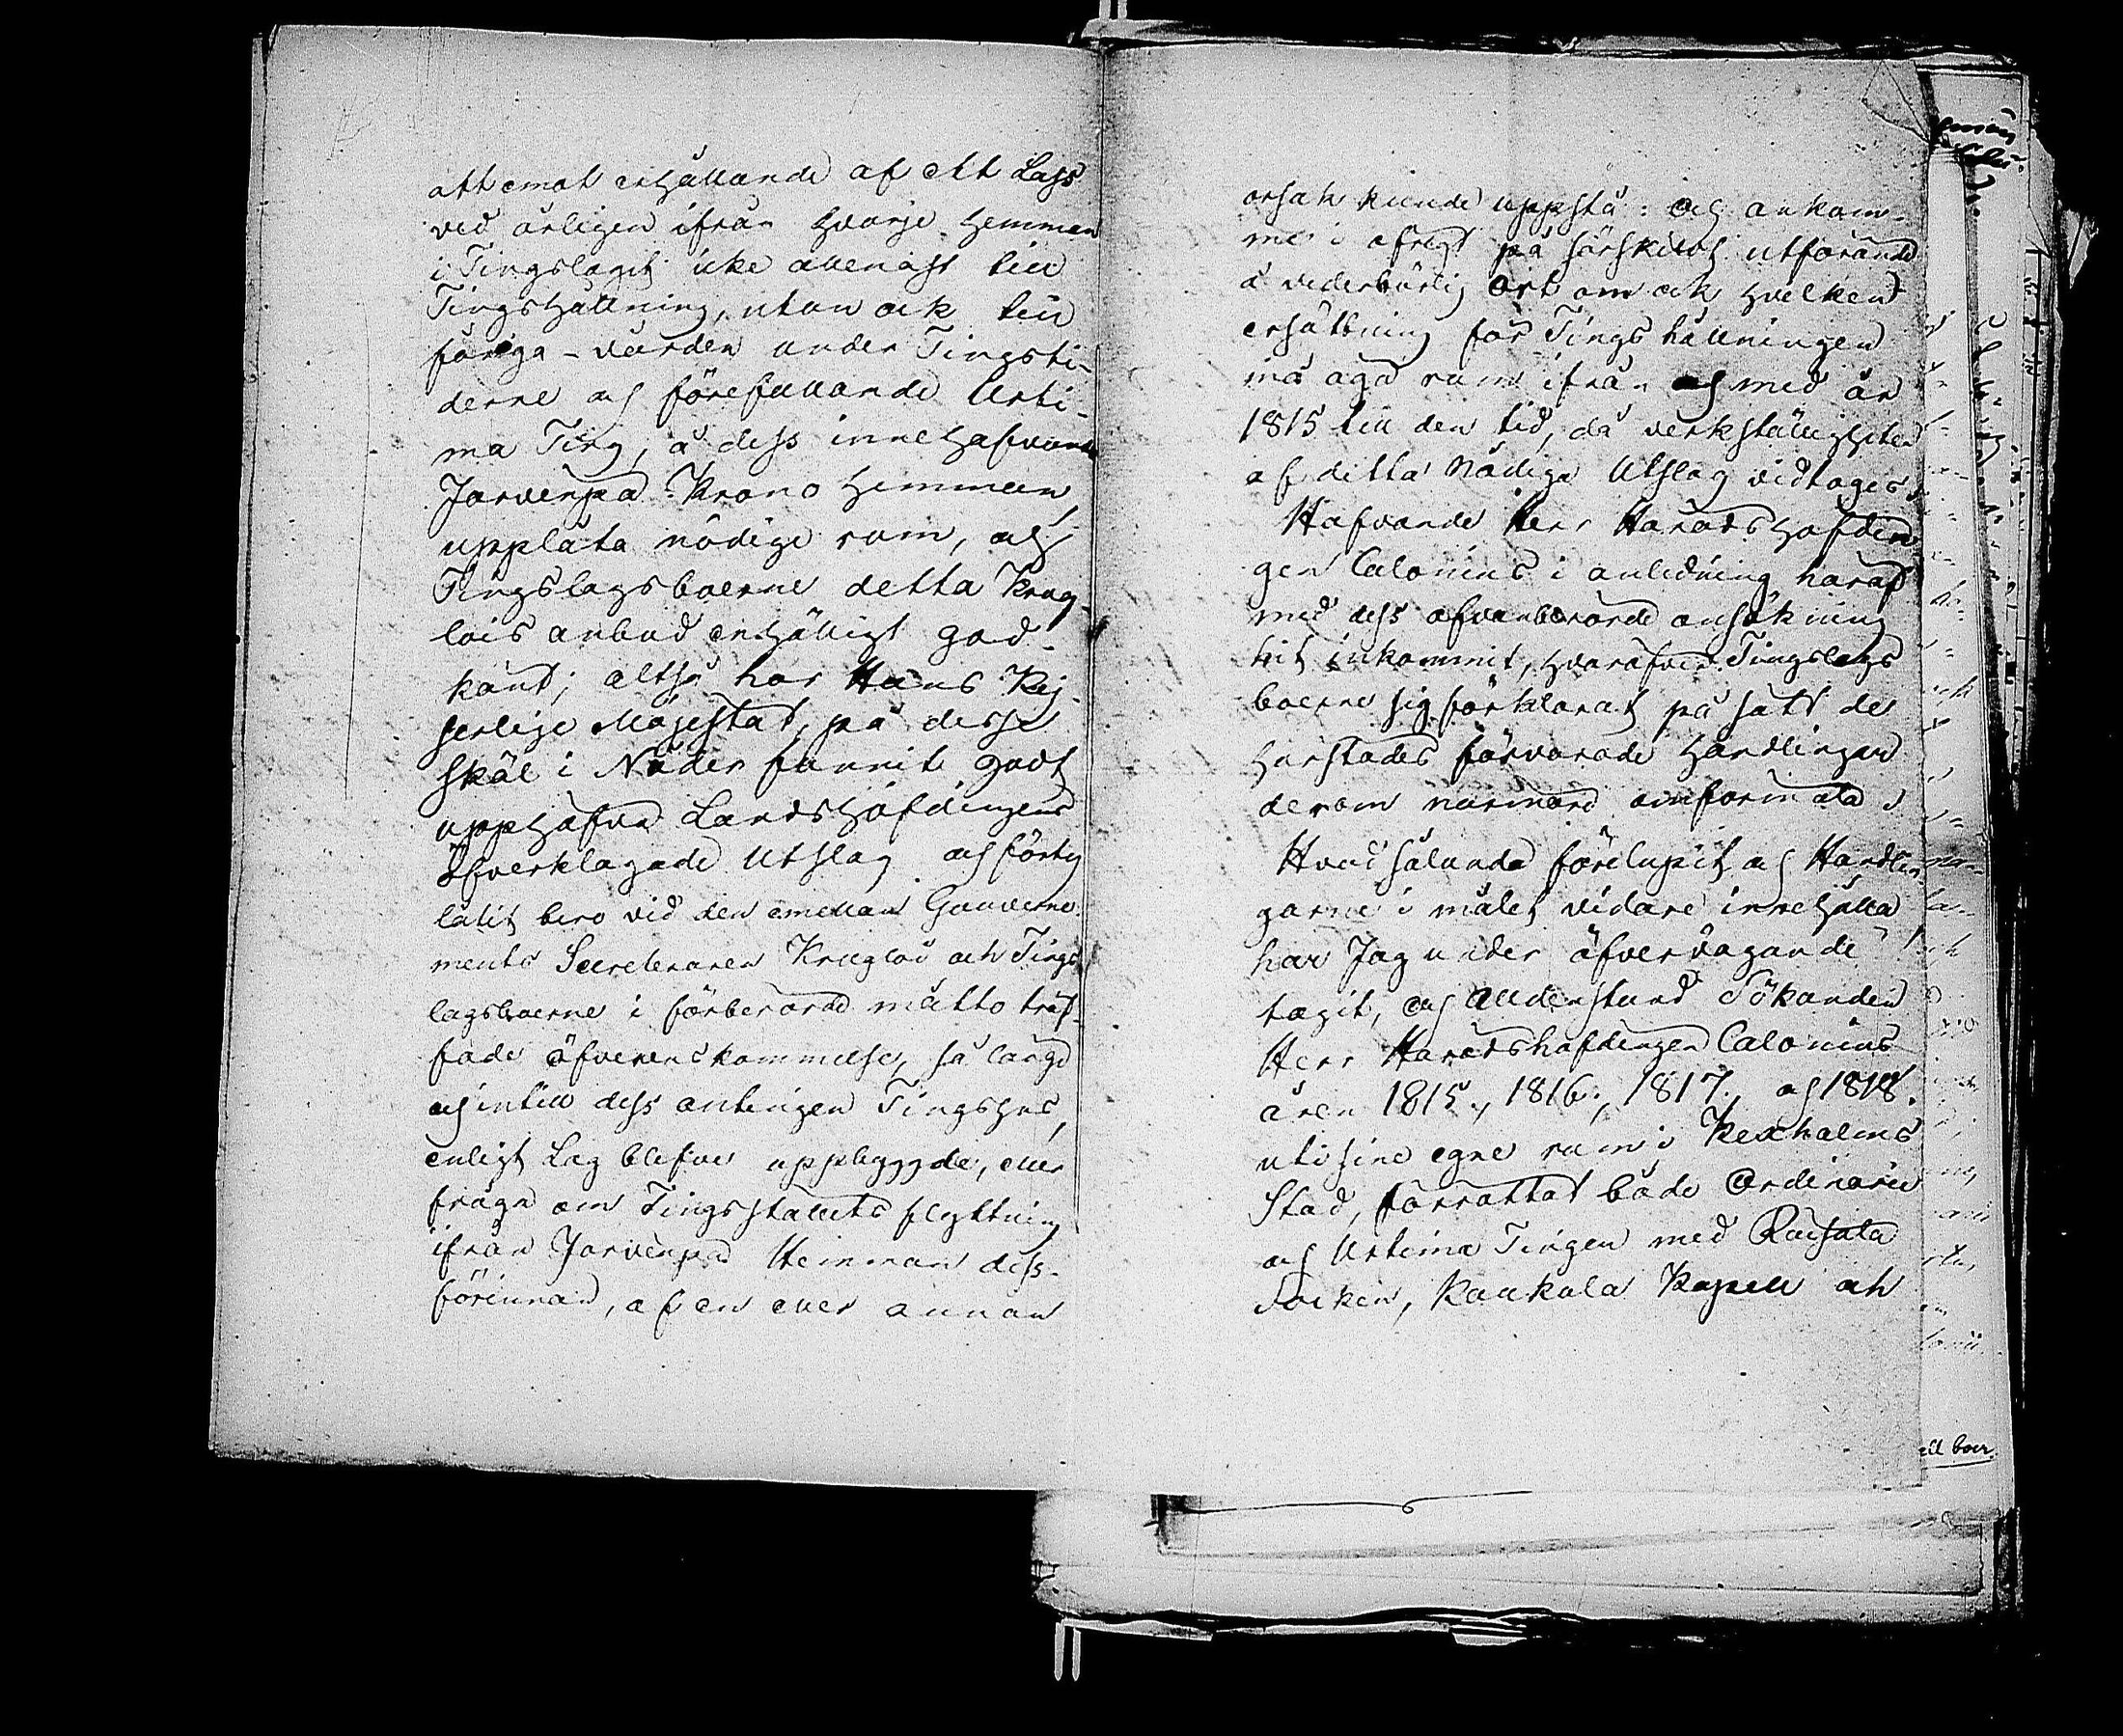 att emot erhållande af ett Lass
ved årligen ifrån hvarje Hemman
i Tingslaget icke allenast till
Tingshållning, utan ock till
fånga-vården under Tingsti-
derne och förefallande Urti-
ma Ting, å dess innehafvande
Jarvenpä Krono Hemman
upplåta nödige rum, och
Tingslagsboerne detta Krug-
lois anbud enhälligt god-
känt; altså har Hans Kej-
serlige Majestät, på desse
skäl i Nåder funnit godt
upphäfva Landshöfdingens
öfverklagade Utslag och förty
låtit bero vid den emellan Gouverne-
ments Secreteraren Krugloi och Tings-
lagsboerne i förberörde måtto träf-
fade öfverenskommelse, så länge
och intill dess antingen Tingshus,
enligt Lag blefve uppbyggde, eller
fråga om Tingsställets flyttning
ifrån Jarvenpä Hemman dess-
förinnan, af en eller annan
orsak kunde uppstå: och ankom-
me i öfrigt på särskildt utförande
å vederbörlig ort om ock hvilken
ersättning för Tingshållningen
må äga rum ifrån och med år
1815 till den tid, då verkställigheten
af detta Nådiga Utslag vidtages.
Hafvande Herr Häradshöfdin-
gen Calonius i anledning häraf
med dess ofvanberörde ansökning
hit inkommit, hvaröfver Tingslags
boerne sig förklarat på sätt de
härstädes förvarade Handlingar
derom närmare omförmäla.
Hvad sålunda förelupit och Handlin-
garne i målet vidare innehålla
har Jag under öfvervägande
tagit, och alldenstund Sökanden
Herr Häradshöfdingen Calonius
åren 1815., 1816., 1817., och 1818.
uti sine egne rum i Kexholms
Stad, förrättat både Ordinarie
och Urtima Tingen med Räisälä
Socken, Kaukola Kapell och